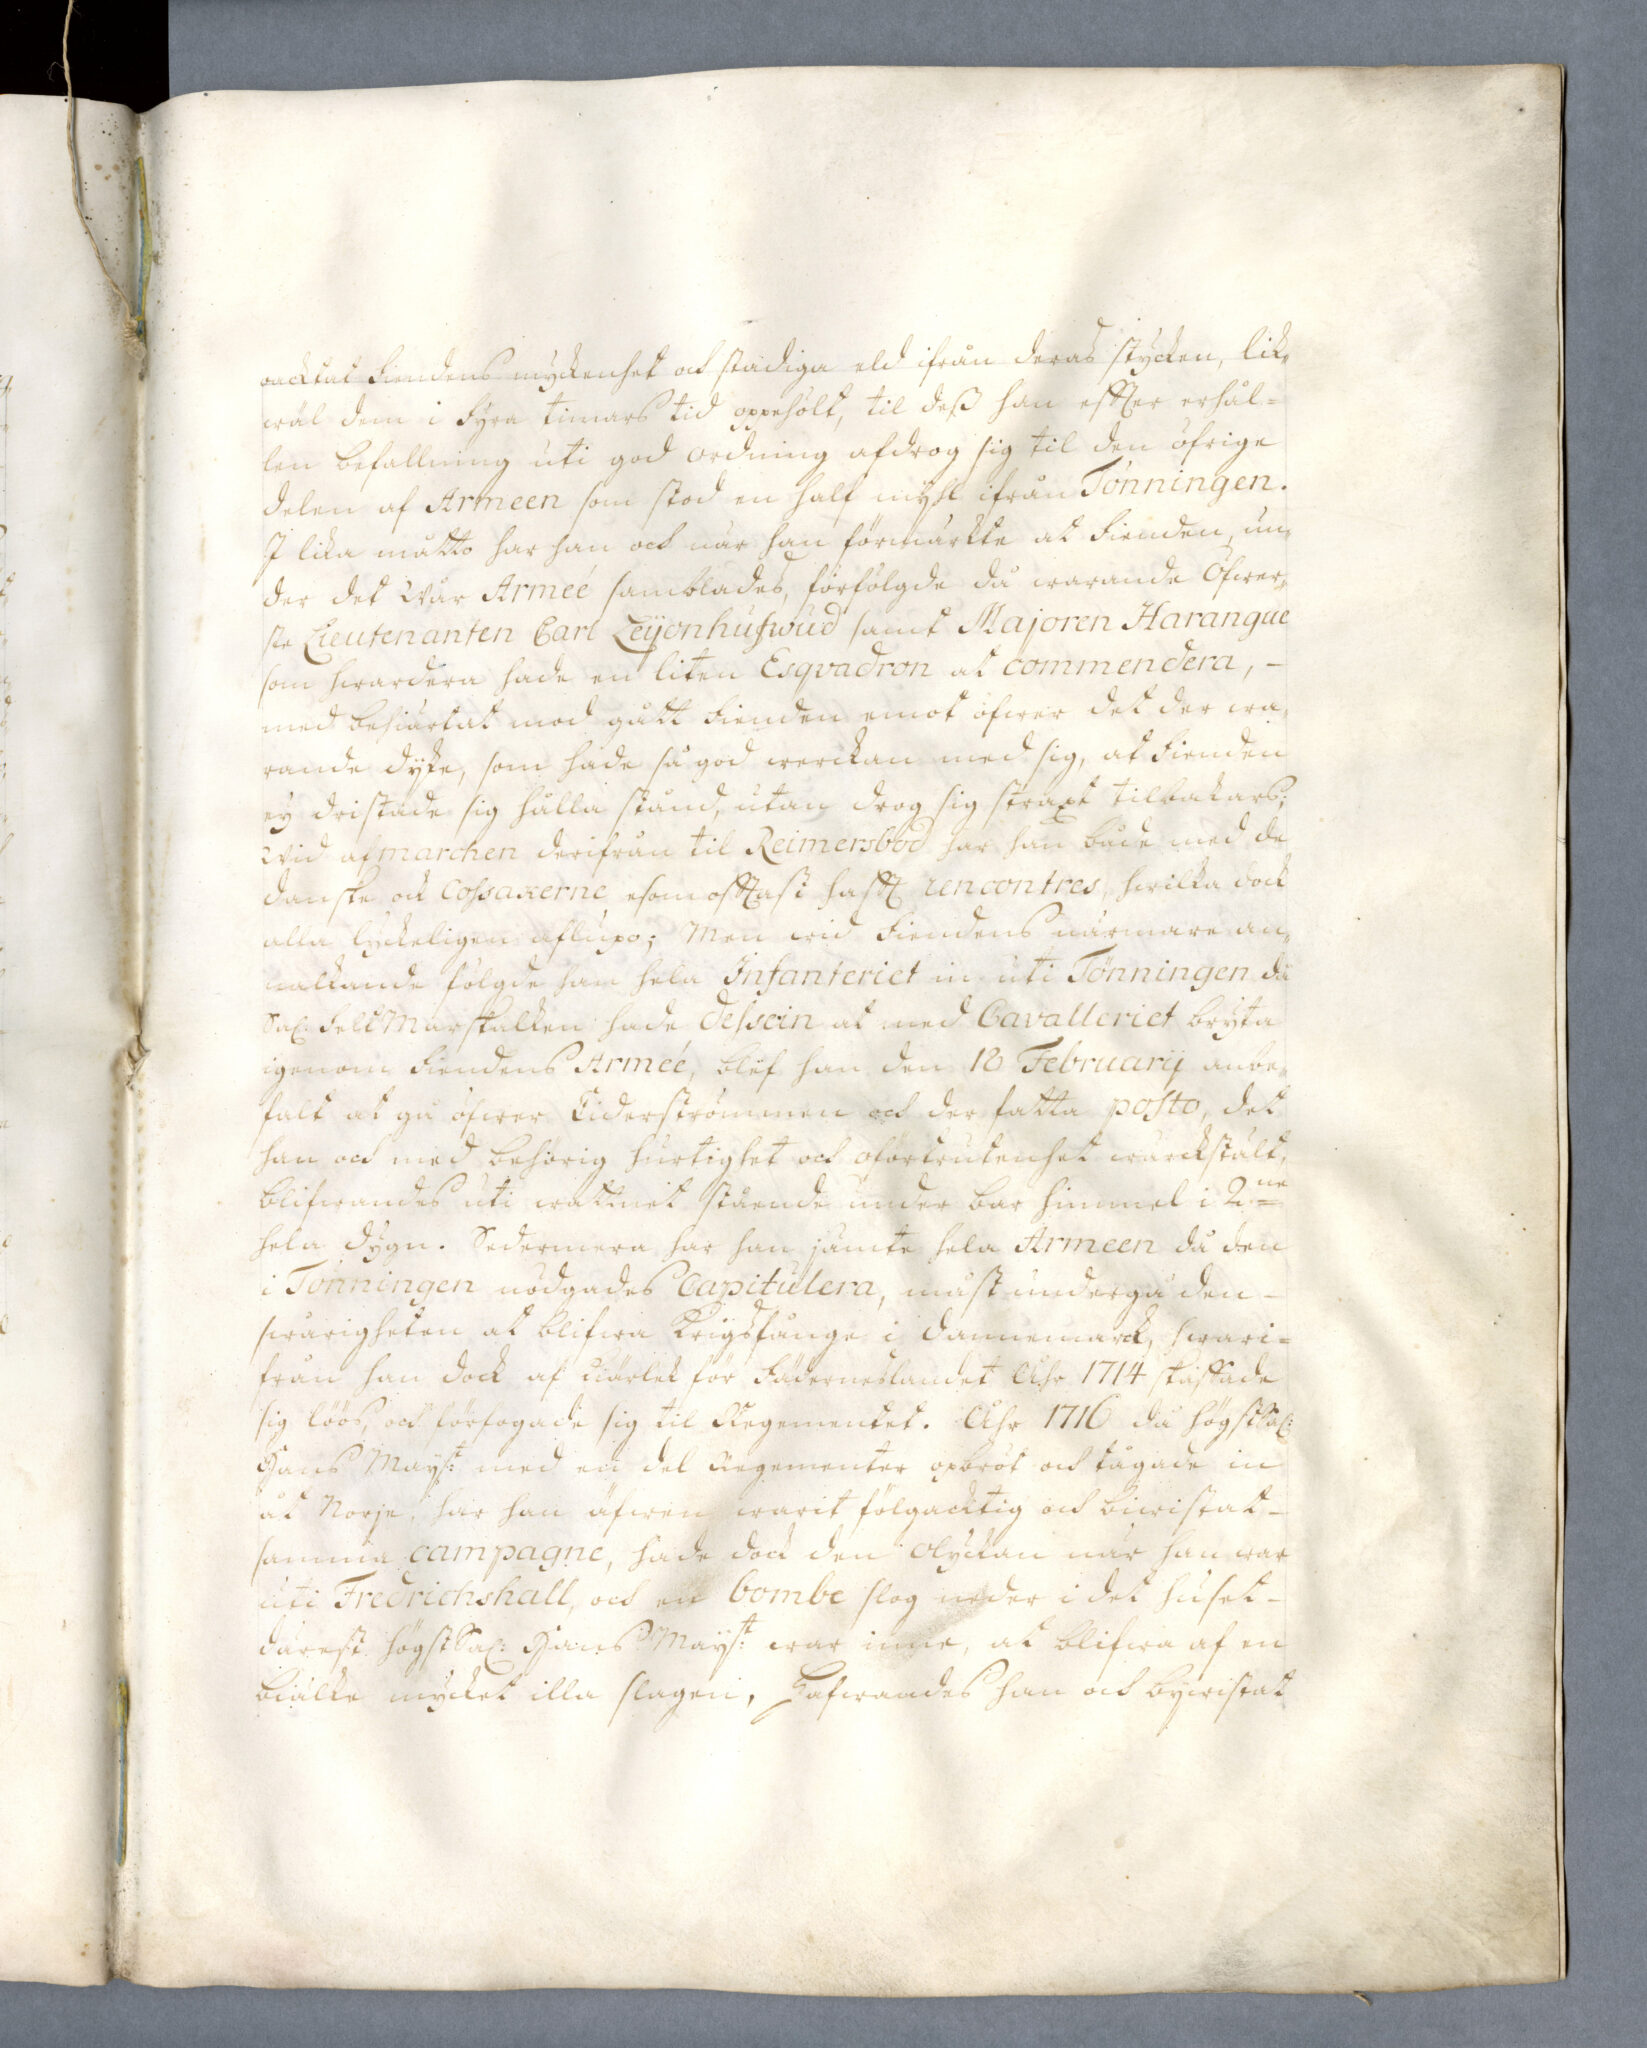 oacktat Fiendens myckenhet och stadiga eld ifrån deras stycken, lik-
wäl dem i Fyra timars tid oppehölt, til deß han effter erhål-
len befallning uti god ordning afdrog sig til den öfrige
delen af Armeen som stod en half myhl ifrån Tönningen.
I lika måtto har han och när han förmärkte at Fienden, un-
der det Wår Armeé samblades, förfölgde då warande Öfwer-
ste Lieutenanten Carl Leijonhufwud samt Majoren Harangue
som hwardera hade en liten Esqvadron at commendera, -
med behiärtat mod gått Fienden emot öfwer det der wa-
rande dyke, som hade så god werckan med sig, at Fienden
ey dristade sig hålla stånd, utan drog sig straxt tilbakars;
Wid afmarchen derifrån til Reimersbod har han både med de
danske och Cossakerne esomofftast hafft rencontres, hwilka dock
alla lyckeligen aflupo; Men wid Fiendens närmare an-
nalkande fölgde han hela Infanteriet in uti Tönningen då
Sal: FeltMarskalken hade dessein at med Cavalleriet bryta
igenom Fiendens Armeé, blef han den 18 Februarij anbe-
falt at gå öfwer Eiderströmmen och der fatta posto, det
han och med behörig hurtighet och oförtrutenhet wärckstält,
blifwandes uti wattnet stående under bar himmel i 2:ne
hela dygn. Sedermera har han jämte hela Armeen då den
i Tönningen nödgades Capitulera, måst undergå den -
swårigheten at blifwa Krigsfånge i Dannemarck, hwari-
från han dock af kiärlek för Fäderneslandet Åhr 1714 skaffade
sig löös, och förfogade sig til Regementet. Åhr 1716 då högstSal:
Hans Mayst: med en del Regementer opbröt och tågade in
åt Norje, har han äfwen warit fölgacktig och biwistat -
samma campagne, hade dock den olyckan när han war
uti Fredrichshall, och en bombe slog neder i det huset -
därest högstSal: Hans Mayst: war inne, at blifwa af en
biälke mycket illa slagen, Hafwandes han och bywistat